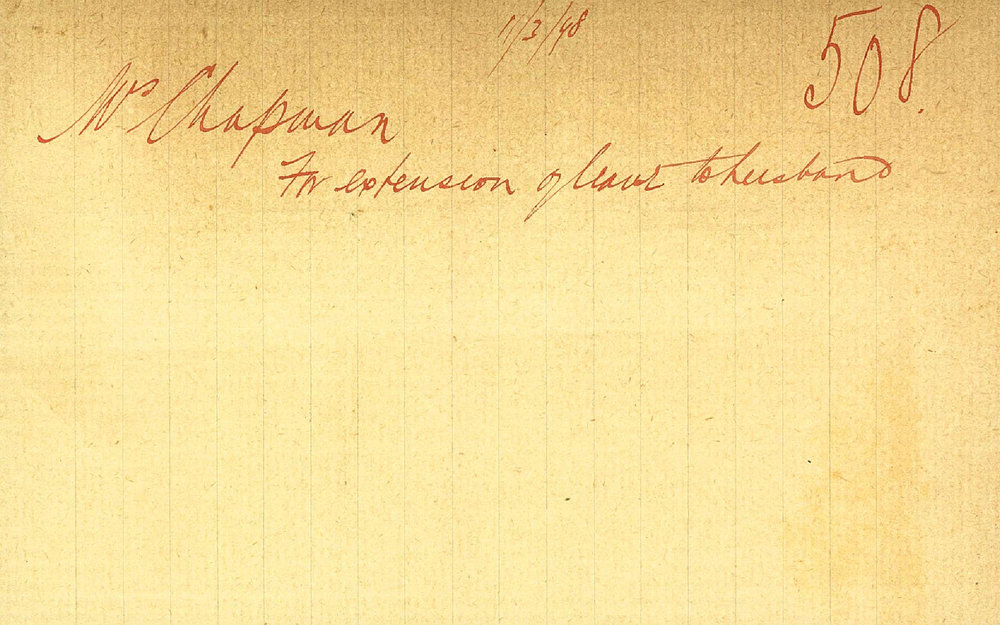 11/3/98
508.
Mrs Chapman
For extension of leave to husband